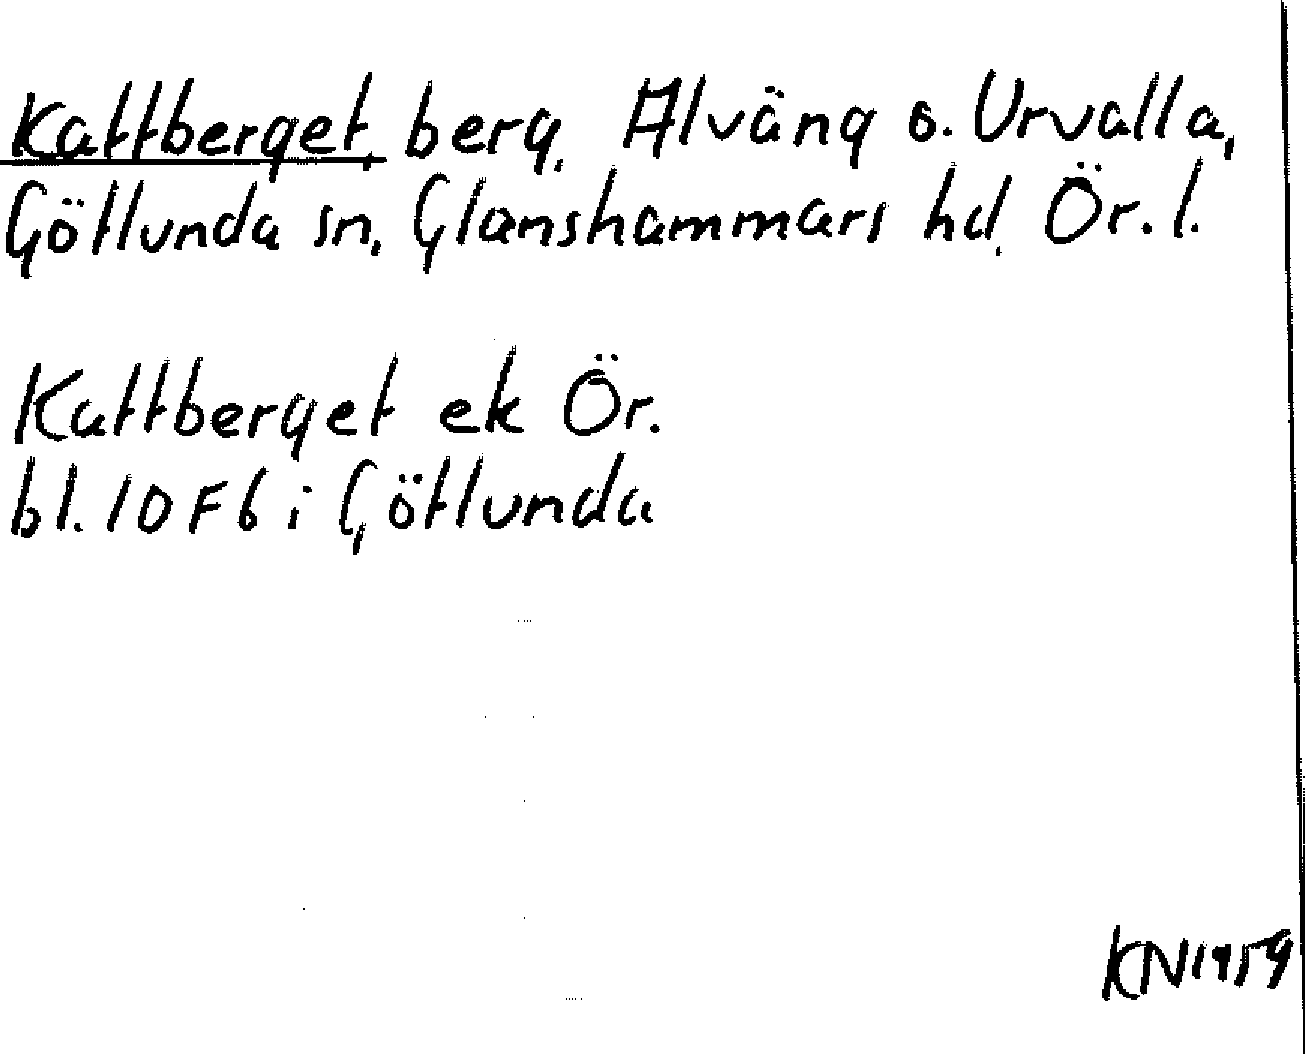 Kattberget, berg, Alväng o. Urvalla,
Götlunda sn, Glanshammars hd, Ör. l.
Kattberget ek Ör.
bl. 10F6 i Götlunda
KN1959